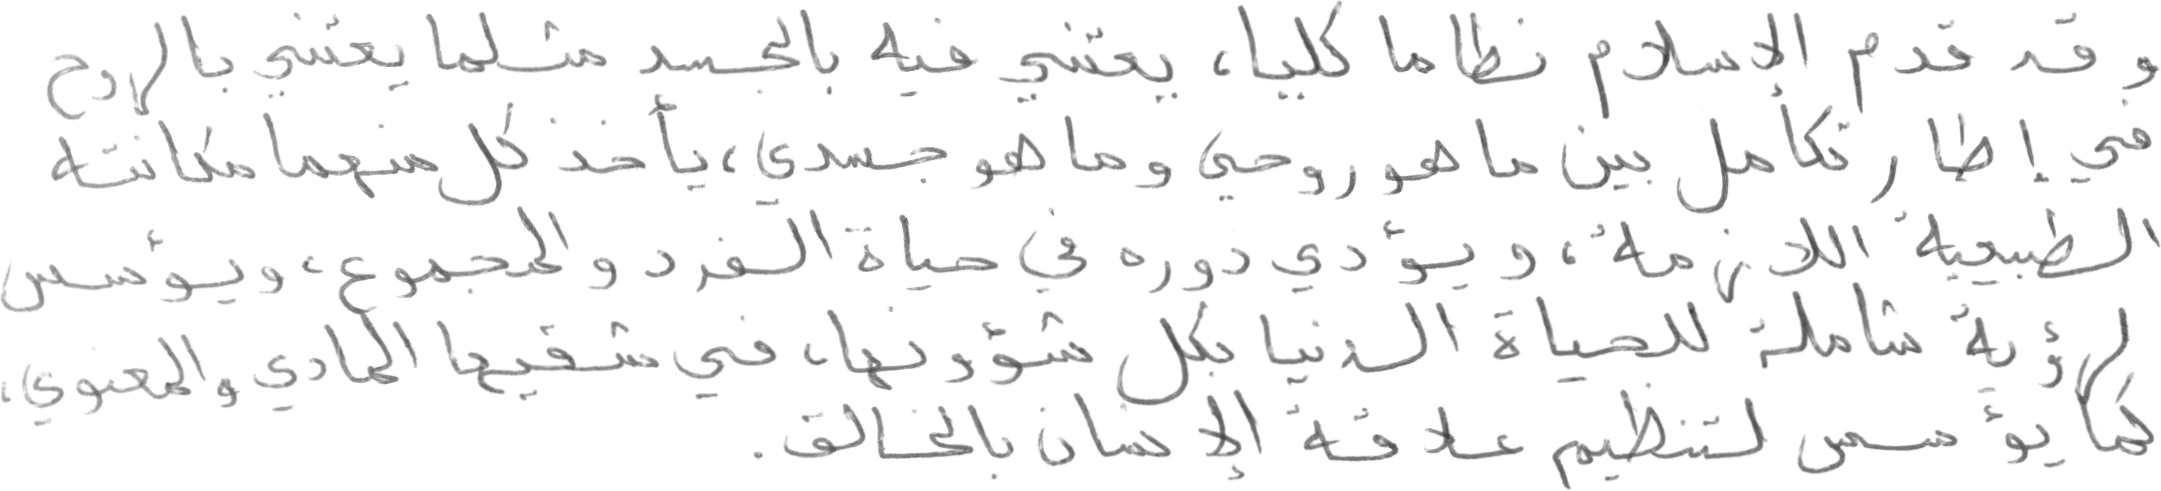 وقد قدم الإسلام نظاما كليا، يعتني فيه بالجسد مثلما يعتني بالروح
في إطار تكامل بين ما هو روحي وما هو جسدي، يأخذ كل منهما مكانته
الطبيعية اللازمة، ويؤدي دوره في حياة الفرد والمجموع، ويؤسس
لرؤية شاملة للحياة الدنيا بكل شؤونها، في شقيها المادي والمعنوي،
كما يؤسس لتنظيم علاقة الإنسان بالخالق.